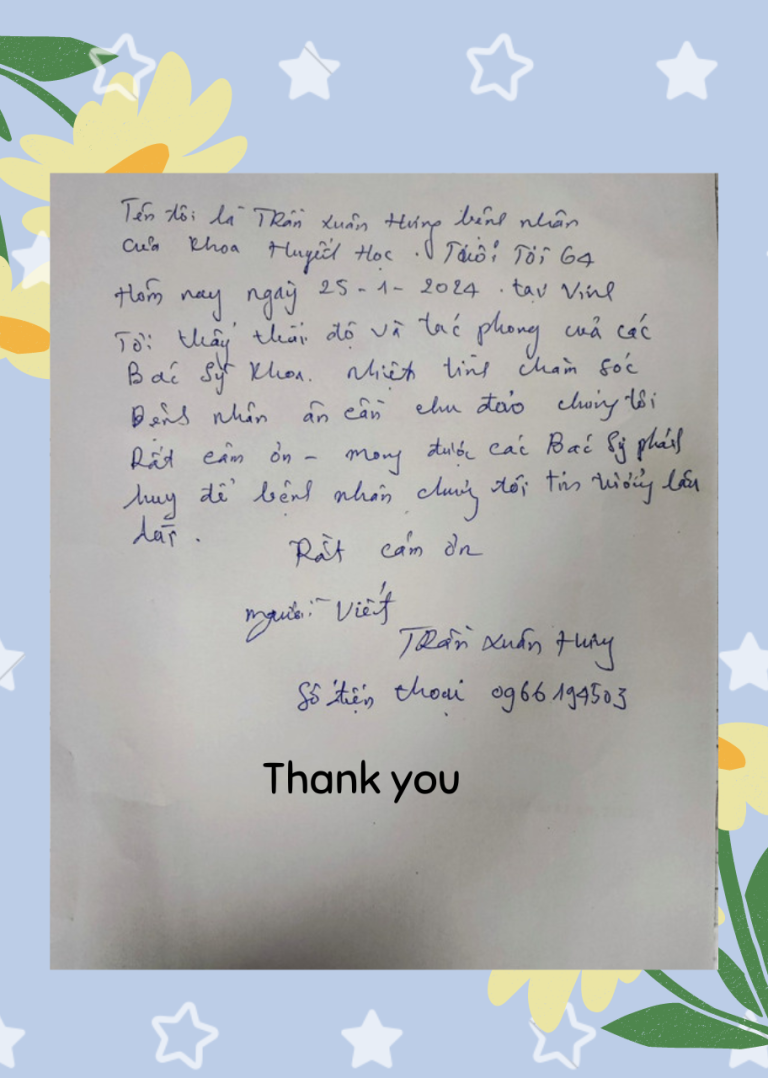 Tên tôi là Trần Xuân Hưng bệnh nhân
của khoa Huyết Học. Tuổi Tôi 64
Hôm nay ngày 25-1-2024. tại Vinh
Tôi thấy thái độ và tác phong của các
Bác Sỹ khoa. nhiệt tình chăm sóc
Bệnh nhân ân cần chu đáo chúng tôi
Rất cảm ơn - mong được các Bác Sỹ phát
huy để bệnh nhân chúng tôi tin tưởng lâu
dài.
Rất cảm ơn
người viết
Trần Xuân Hưng
Số điện thoại 0966194503
Thank you